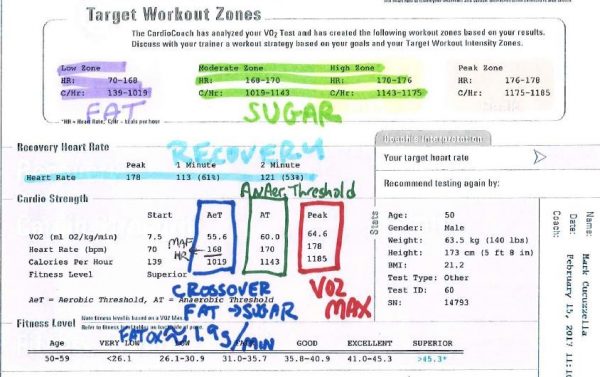 Target Workout Zones
The CardioCoach has analyzed your VO2 Test and has created the following workout zones based on your results.
Discuss with your trainer a workout strategy based on your goals and your Target Workout Intensity Zones.
Low Zone Moderate Zone High Zone Peak Zone
HR: 70-168 HR: 168-170 170-176 HR: 176-178
C/Hr: 139-1019 C/Hr: 1019-1143 1143-1175 C/Hr: 1175-1185
FAT SUGAR
*HR = Heart Rate, C/Hr = Calories per hour
Recovery Heart Rate RECOVERY
Peak 1 Minute 2 Minute
Heart Rate 178 113 (61%) 121 (53%)
Coach's Interpretation
Your target heart rate
Recommend testing again by:
ANAer. Threshold
Cardio Strength
Start AeT AT Peak
VO2 (ml O2/kg/min) 7.5 55.6 60.0 64.6
Heart Rate (bpm) 70 MAF HR 168 170 178
Calories Per Hour 139 1019 1143 1185
Fitness Level Superior
AeT = Aerobic Threshold, AT = Anaerobic Threshold
CROSSOVER
FAT → SUGAR
VO2
MAX
Stats
Age: 50
Gender: Male
Weight: 63.5 kg (140 lbs)
Height: 173 cm (5 ft 8 in)
BMI: 21.2
Test Type: Other
Test ID: 60
SN: 14793
Name: Mark Cucuzzella
Date: February 15, 2017 11:10
Coach:
Fitness Level
Note fitness level is based on a VO2 Max
FAT OX ≈ 1.9g/MIN
Age VERY LOW GOOD EXCELLENT SUPERIOR
50-59 <26.1 26.1-30.9 31.0-35.7 35.8-40.9 41.0-45.3 >45.3*